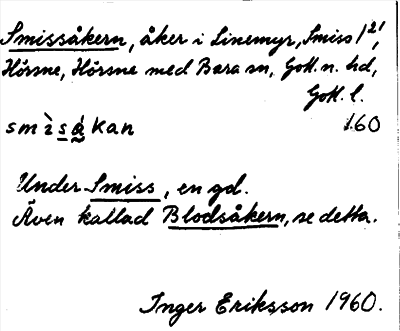 Smissåkern, åker i Linemyr, Smiss 1²¹,
Hörsne, Hörsne med Bara sn, Gotl. n. hd,
Gotl. l.
160
Under Smiss, en gd.
Även kallad Blodsåkern, se detta.
Inger Eriksson 1960.